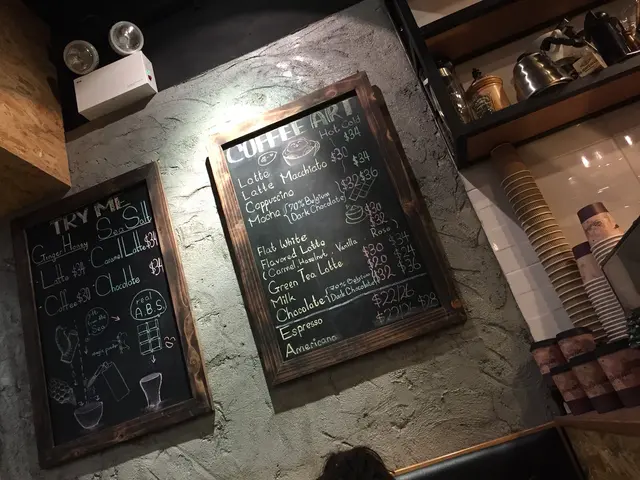 TRY ME
Ginger Honey Sea Salt
Latte $34 Caramel Latte $34
Coffee $30 Chocolate $34
real
A.B.S
COFFEE ART
Hot Cold
Latte $34
Latte Macchiato $30
Cappuccino $34
Mocha (70% Belgium $32 $36
Dark Chocolate)
Flat White $30
Flavored Latte $32
(Caramel, Hazelnut, Vanilla Rose
Green Tea Latte $30 $34
Milk
Chocolate (70% Belgium $32 $36
Dark Chocolate)
Espresso $22/26
Americano $22/26 $28